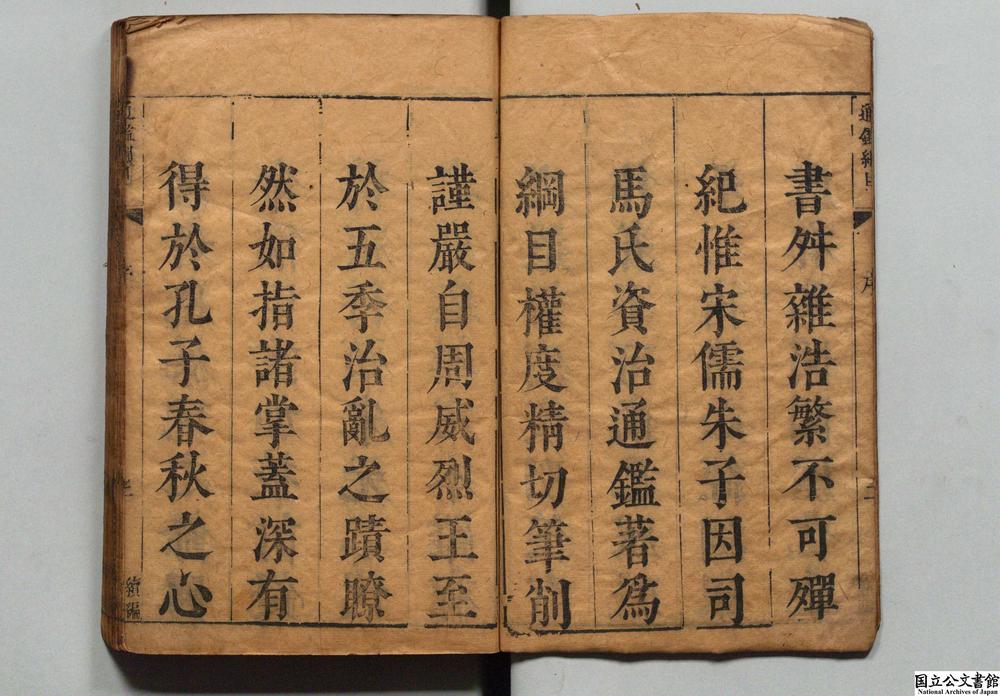 書舛雜浩繁不可殫
紀惟宋儒朱子因司
馬氏資治通鑑著爲
綱目權度精切筆削
謹嚴自周威烈王至
於五季治亂之蹟瞭
然如指諸掌蓋深有
得於孔子春秋之心
通鑑綱目
序
續編
国立公文書館
National Archives of Japan